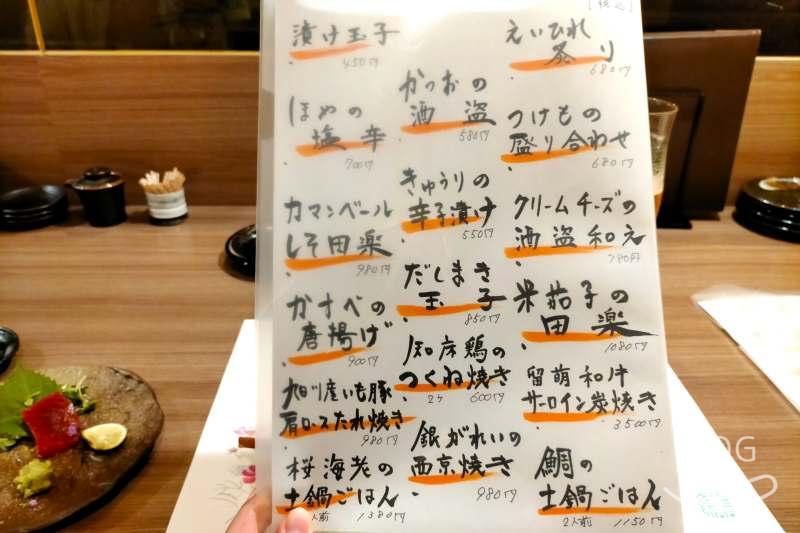 [税込]
えいひれ
炙り
680円
つけもの
盛り合わせ
680円
クリームチーズの
酒盗和え
780円
米茄子の
田楽
1080円
留萌和牛
サーロイン炭焼き
3500円
鯛の
土鍋ごはん
2人前 1150円
かつおの
酒盗
580円
きゅうりの
辛子漬け
550円
だしまき
玉子
850円
知床鶏の
つくね焼き
2ケ 600円
銀がれいの
西京焼き
980円
漬け玉子
450円
ほやの
塩辛
700円
カマンベール
しそ田楽
980円
かすべの
唐揚げ
900円
旭川産いも豚
肩ロースたれ焼き
980円
桜海老の
土鍋ごはん
人前 1380円